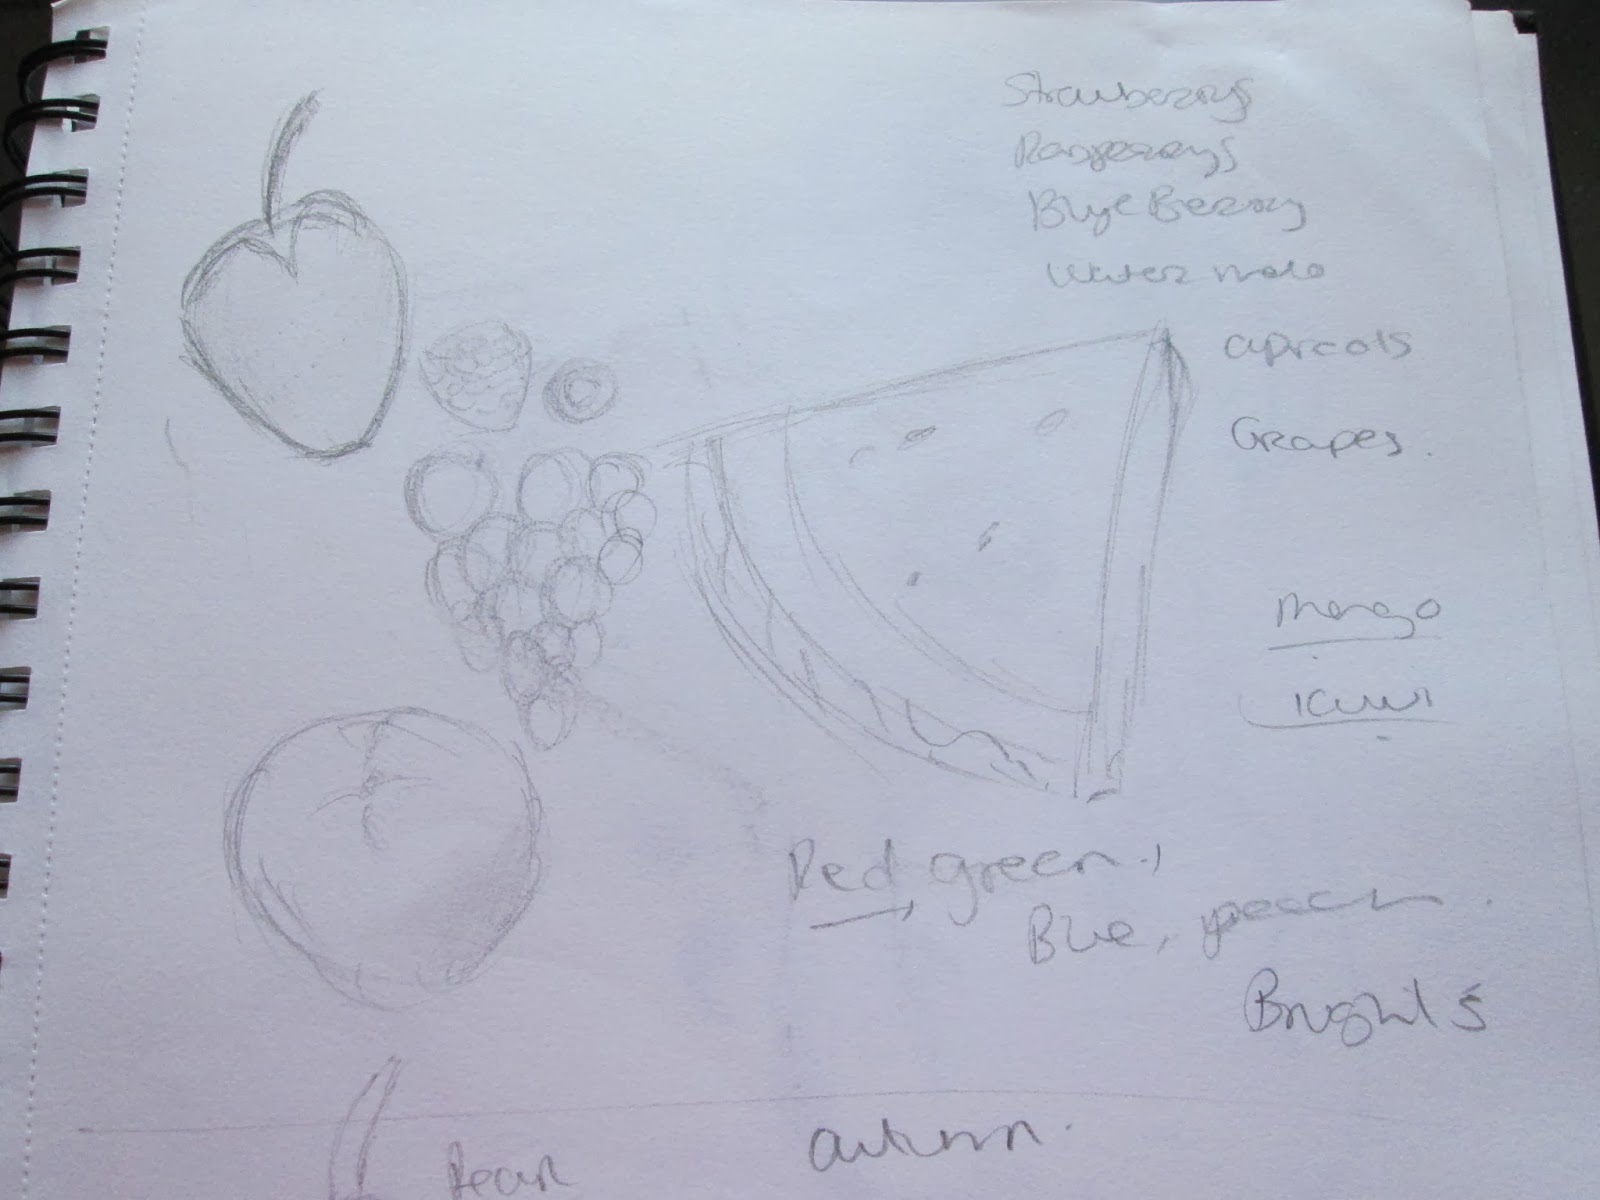 Strawberrys
Raspberrys
Blue Berry
Water melo
apricots
Grapes.
mango
kiwi
Red green,
Blue, peach.
Brights
autumn.
Pear